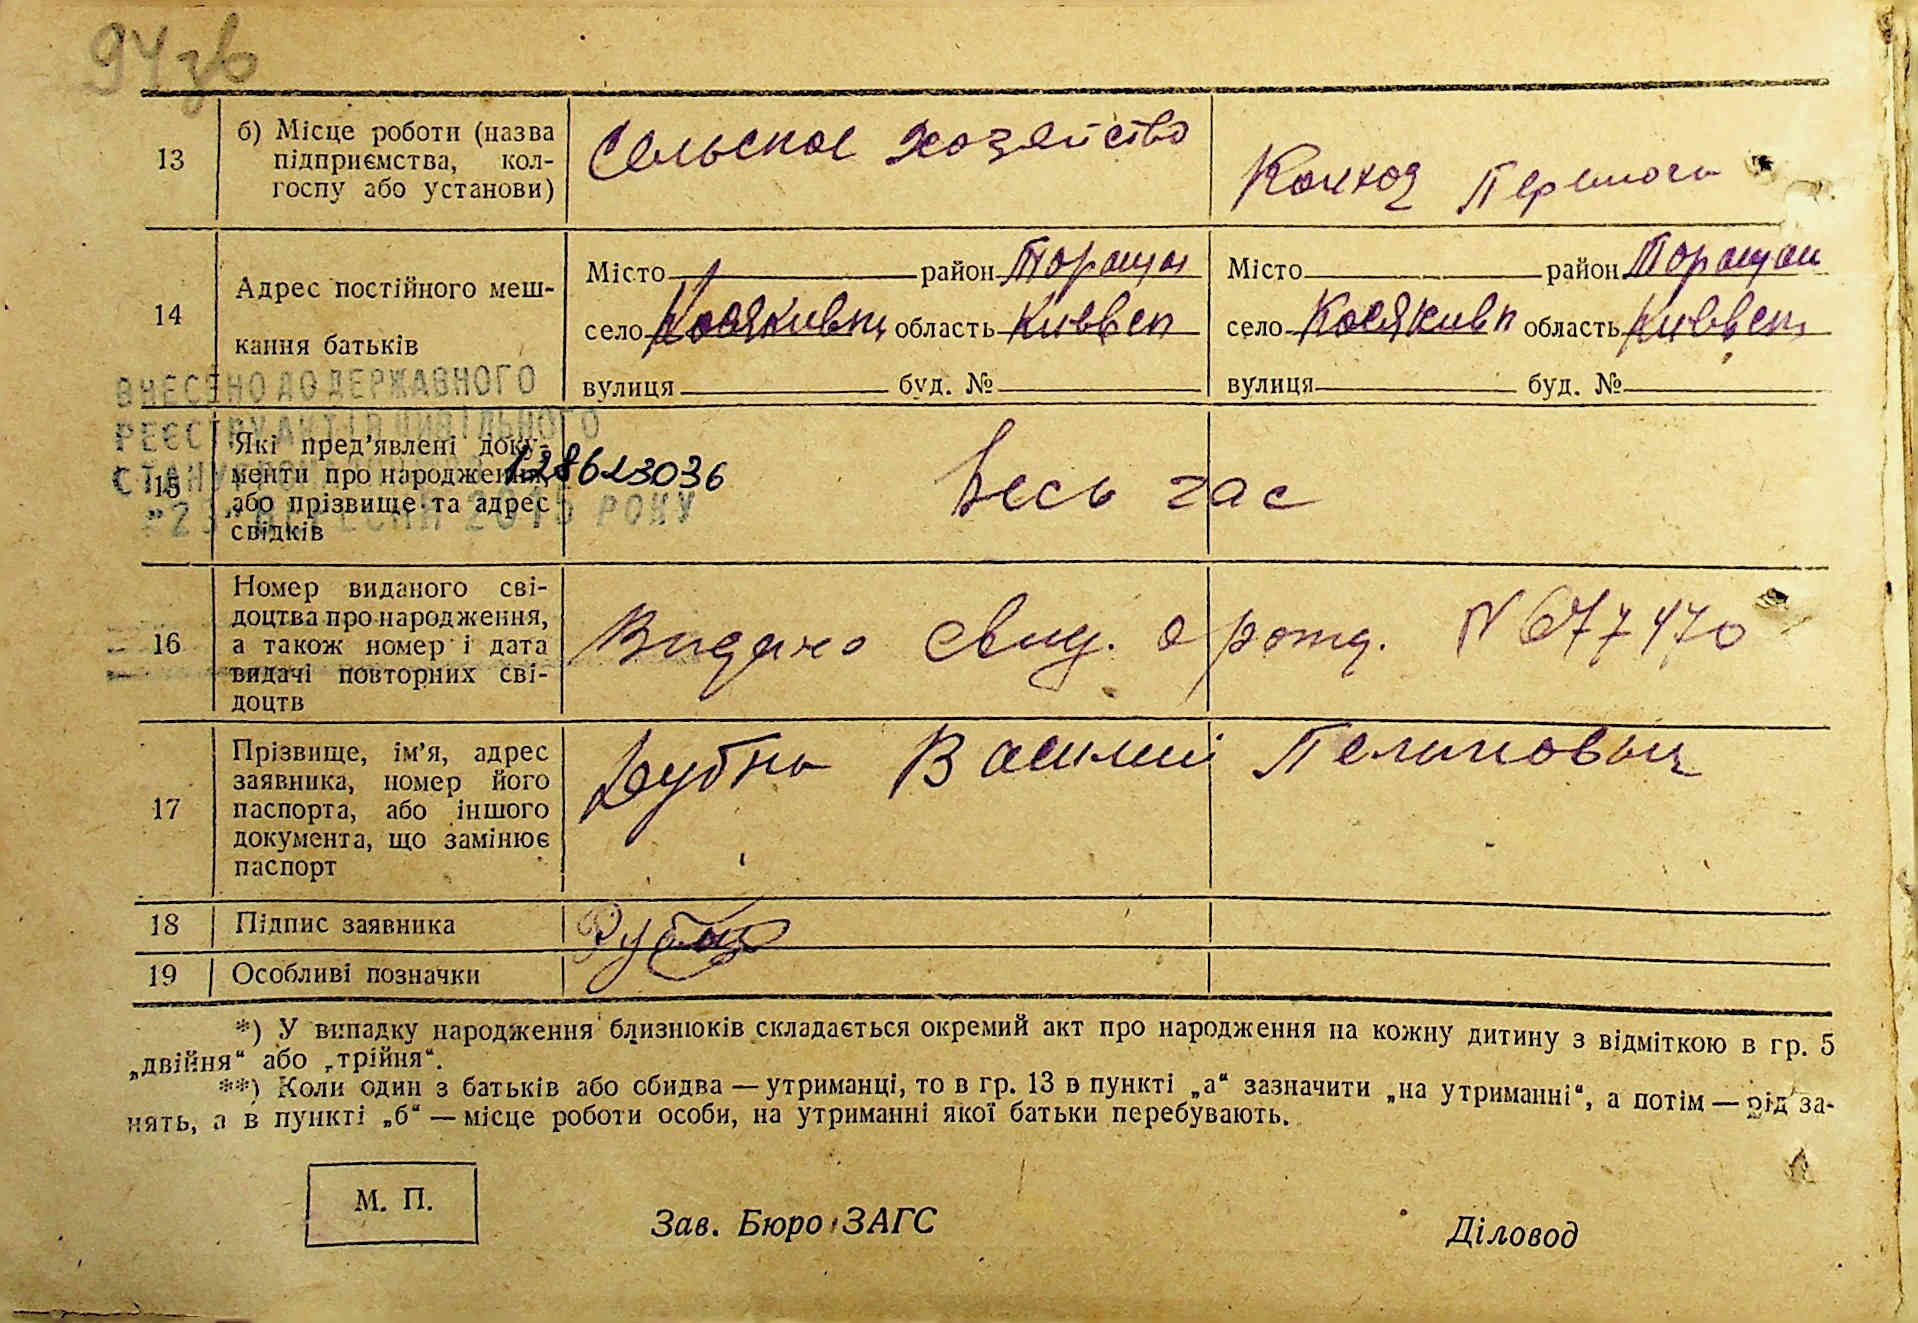 94зв
13
б) Місце роботи (назва
підприємства, кол-
госпу або установи)
Сельское хозяйство
Колхоз Перемога
14
Адрес постійного меш-
кання батьків
Місто район Таращан
село Косяковка область Киевск
вулиця буд. №
Місто район Таращан
село Косяковка область Киевск
вулиця буд. №
ВНЕСЕНО ДО ДЕРЖАВНОГО
РЕЄСТРУ АКТІВ ЦИВІЛЬНОГО
СТАНУ
"23" ВЕРЕСНЯ 2015 РОКУ
128623036
15
Які пред’явлені доку-
менти про народження,
або прізвище та адрес
свідків
Весь час
16
Номер виданого сві-
доцтва про народження,
а також номер і дата
видачі повторних сві-
доцтв
Видано Свид. о рожд. N 677470
17
Прізвище, ім’я, адрес
заявника, номер його
паспорта, або іншого
документа, що замінює
паспорт
Василий
18
Підпис заявника
19
Особливі позначки
*) У випадку народження близнюків складається окремий акт про народження на кожну дитину з відміткою в гр. 5
„двійня“ або „трійня“.
**) Коли один з батьків або обидва — утриманці, то в гр. 13 в пункті „а“ зазначити „на утриманні“, а потім — рід за-
нять, а в пункті „б“ — місце роботи особи, на утриманні якої батьки перебувають.
М. П.
Зав. Бюро ЗАГС
Діловод